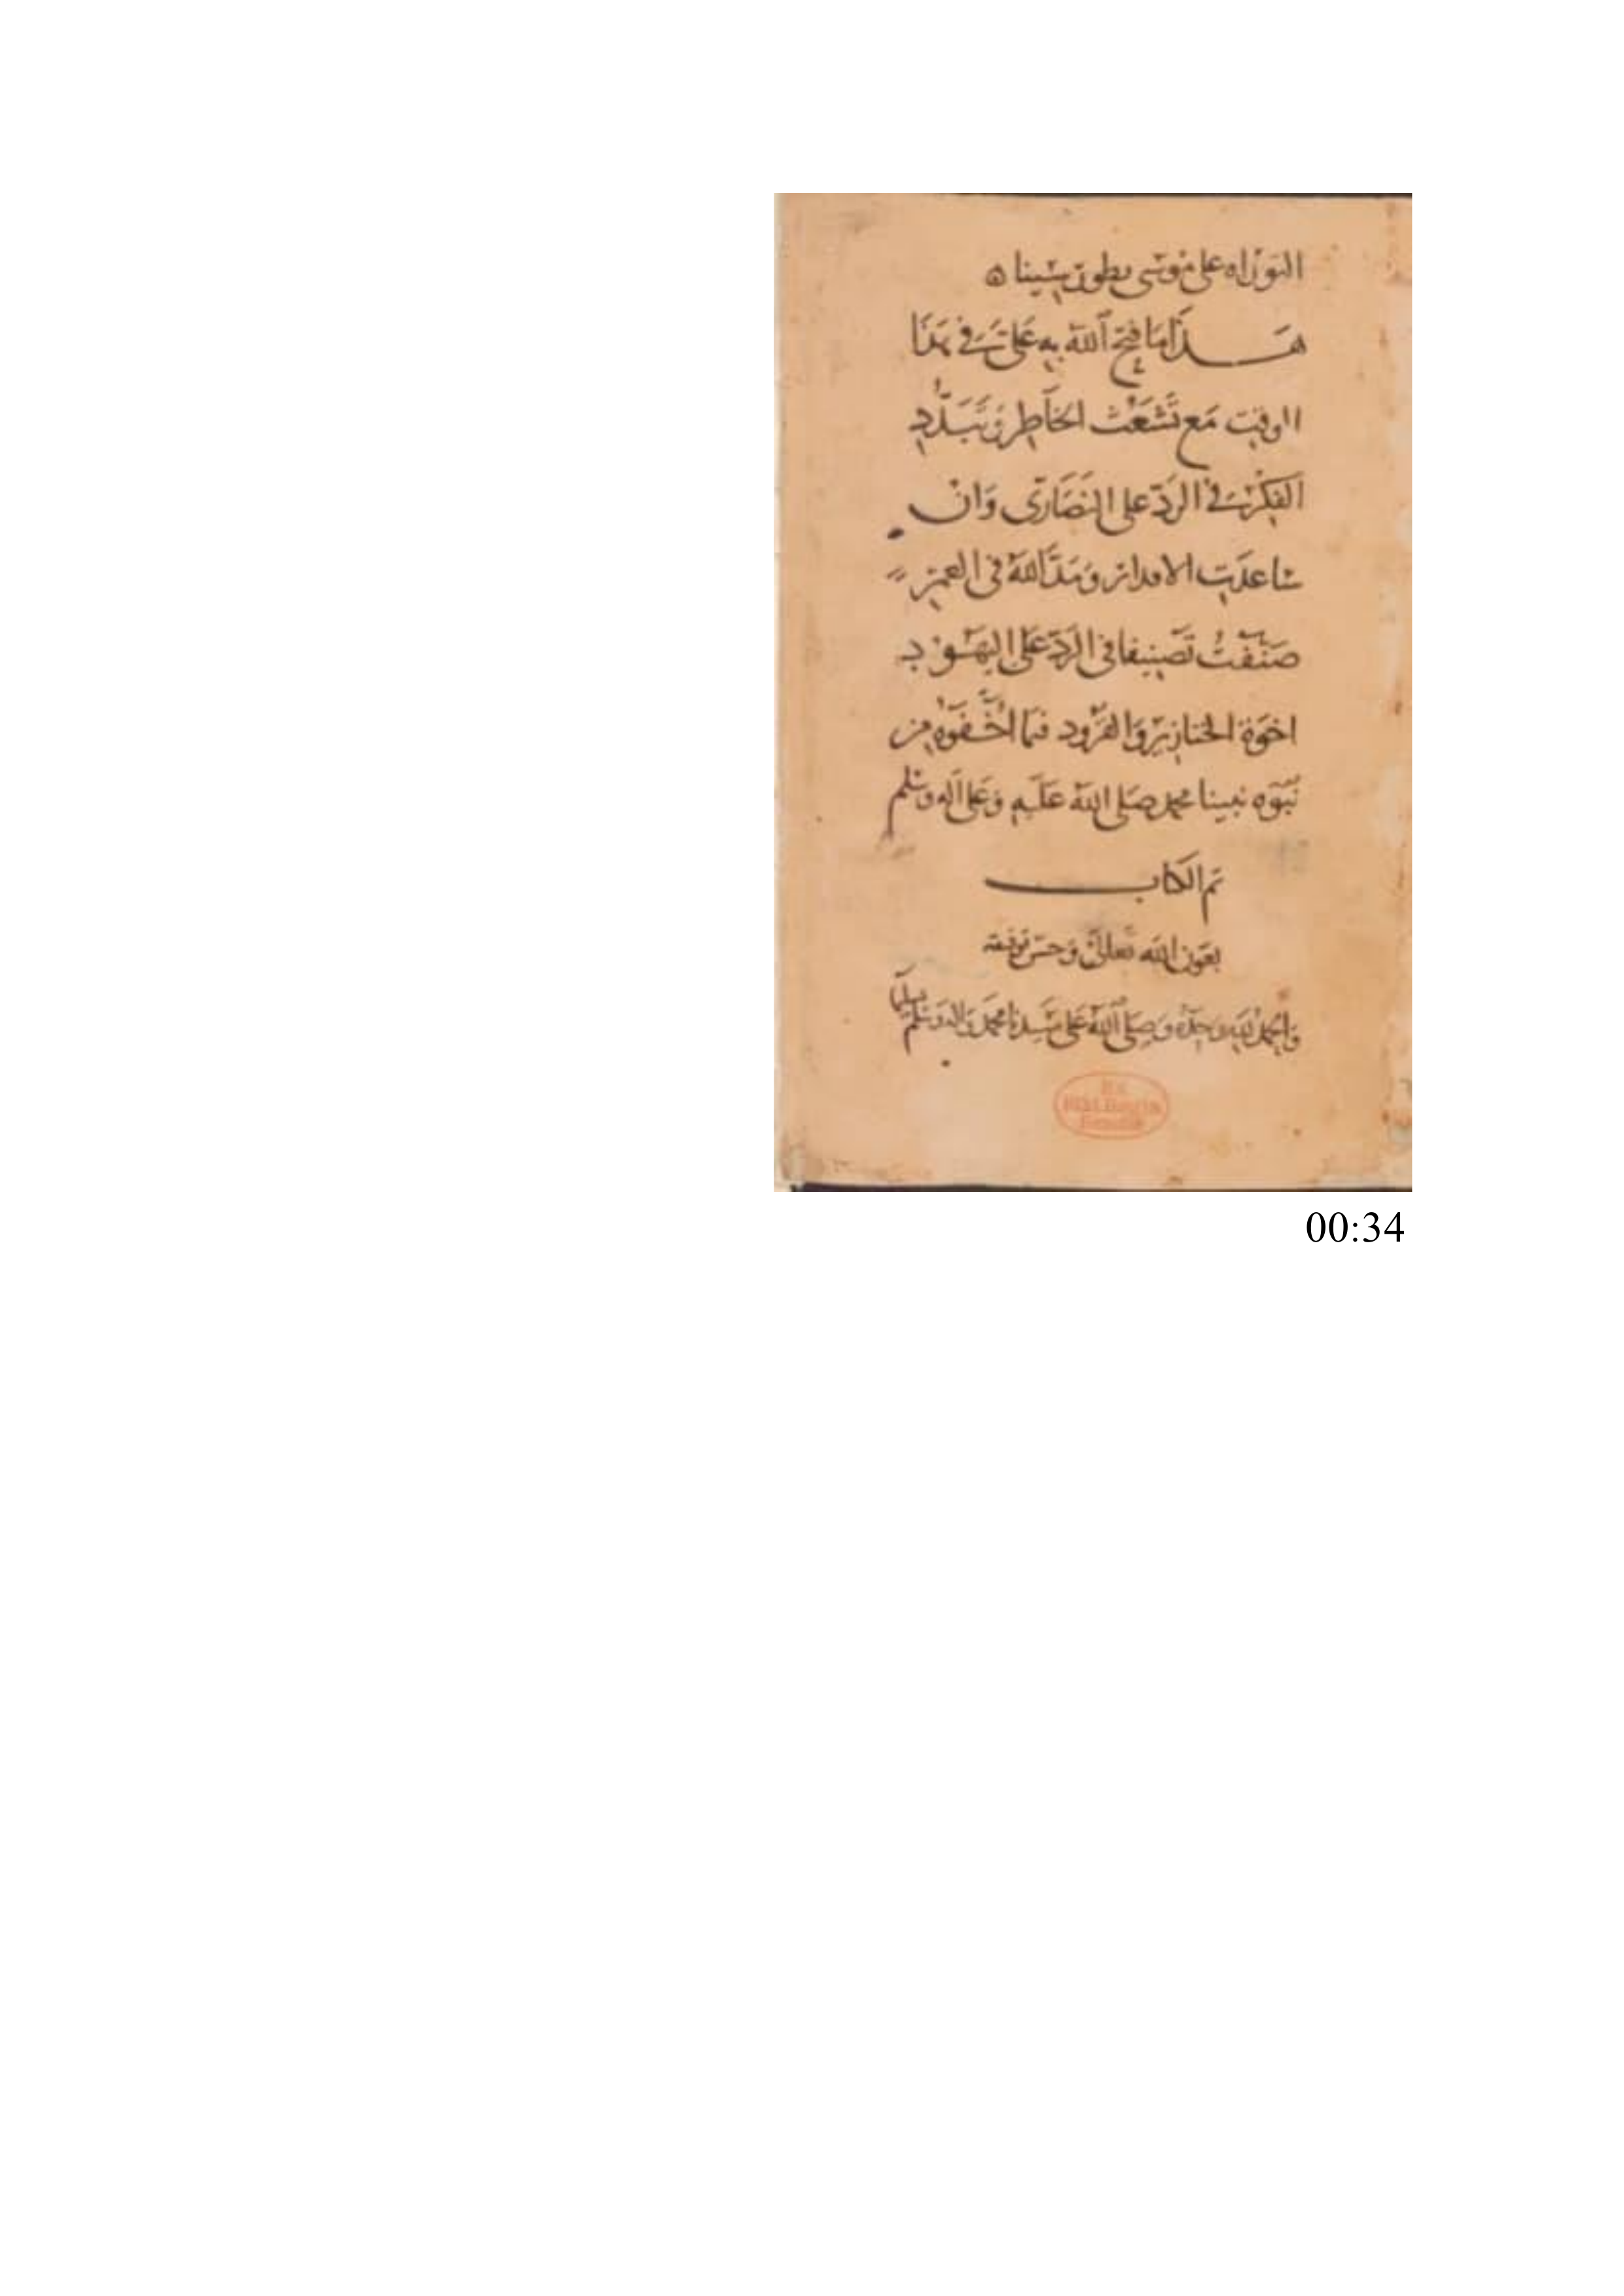 التوراه على موسى بطور سينا ه
هَذَا مَا فتح اللَّه به عَلىَّ في هَذَا
الوقت مَع تَشَعُّث الخَاطِر وَتَبَدُّدِ
الفِكْر في الرَدّ على النَصَارَى وَان
سَاعدَت الاقدار وَمَدَّ اللَّه في العمر
صَنَّفْتُ تَصنيفا في الرَدّ عَلى اليَهود
اخوَة الخنازير وَالقرُود فيما أخْفَوْه من
نُبُوّه نبينا محمد صَلى الله عَليه وَعَلى آله وَسَلم
تم الكتاب
بعَون الله تعالى وَحسْن توفيقه
وَالحمْدُ للَّه وَحْدَهُ وَصَلى اللَّهُ عَلى سَيِّدنا محمَد وَاله وَسَلم تسليما
Ex
Bibl. Regia
Berolin.
00:34